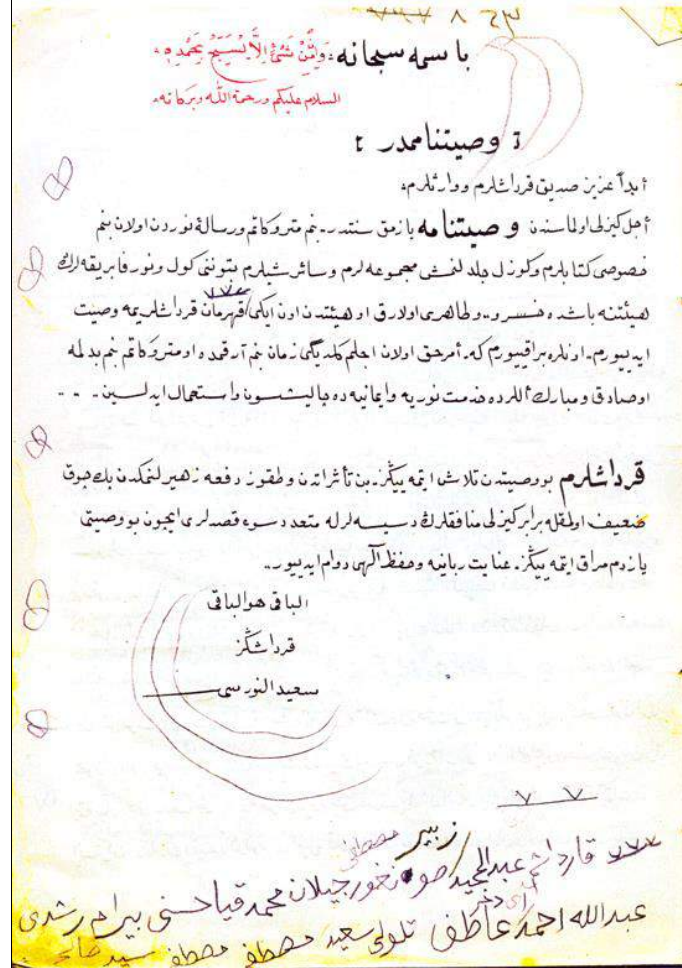 باسمه سبحانه ٭ وَاِنْ مِنْ شَىْءٍ اِلَّا يُسَبِّحُ بِحَمْدِهِ ٭
السلام عليكم ورحمة الله وبركاته ٭
وصيتنامه در
أبداً عزيز صديق قرداشلرم ووارثلرم،
أجل كيزلى اولماسندن وصيتنامه يازمق سنتدر. بنم متروكاتم ورسالۀ نوردن اولان بنم
خصوصى كتابلرم وكوزل جلدلنمش مجموعه لرم وسائر شيلرم بتوننى كول ونور فابريقه لرڭ
هيئتنه باشده خسرو و طاهرى اولارق او هيئتدن اون ايكى قهرمان قرداشلريمه وصيت
ايدييورم. اونلره براقييورم كه. أمرحق اولان اجلم كلديگى زمان بنم آرقمده او متروكاتم بنم بدلمه
اوصادق ومبارك أللرده خدمت نوريه وايمانيه ده چاليشسون واستعمال ايدلسين. - -
قرداشلرم بو وصيتدن تلاش ايتمه ييڭز. بن تأثراتدن وطقوز دفعه زهيرلنمكدن پك چوق
ضعيف اولمقله برابر كيزلى منافقلرڭ دسيسه لرله متعدد سوء قصدلرى ايچون بو وصيتى
يازدم مراق ايتمه ييڭز. عنايت ربانيه وحفظ آلهى دوام ايدييور..
الباقى هوالباقى
قرداشڭز
سعيد النورسى
٧ ٧
زبير مصطفى
٧٧٧ قارداشم عبدالمجيد صونغور جيلان محمد قيا حسنى بيرام رشدى
عبدالله احمد عاطف سعيد مصطفى مصطفى سيد صالح